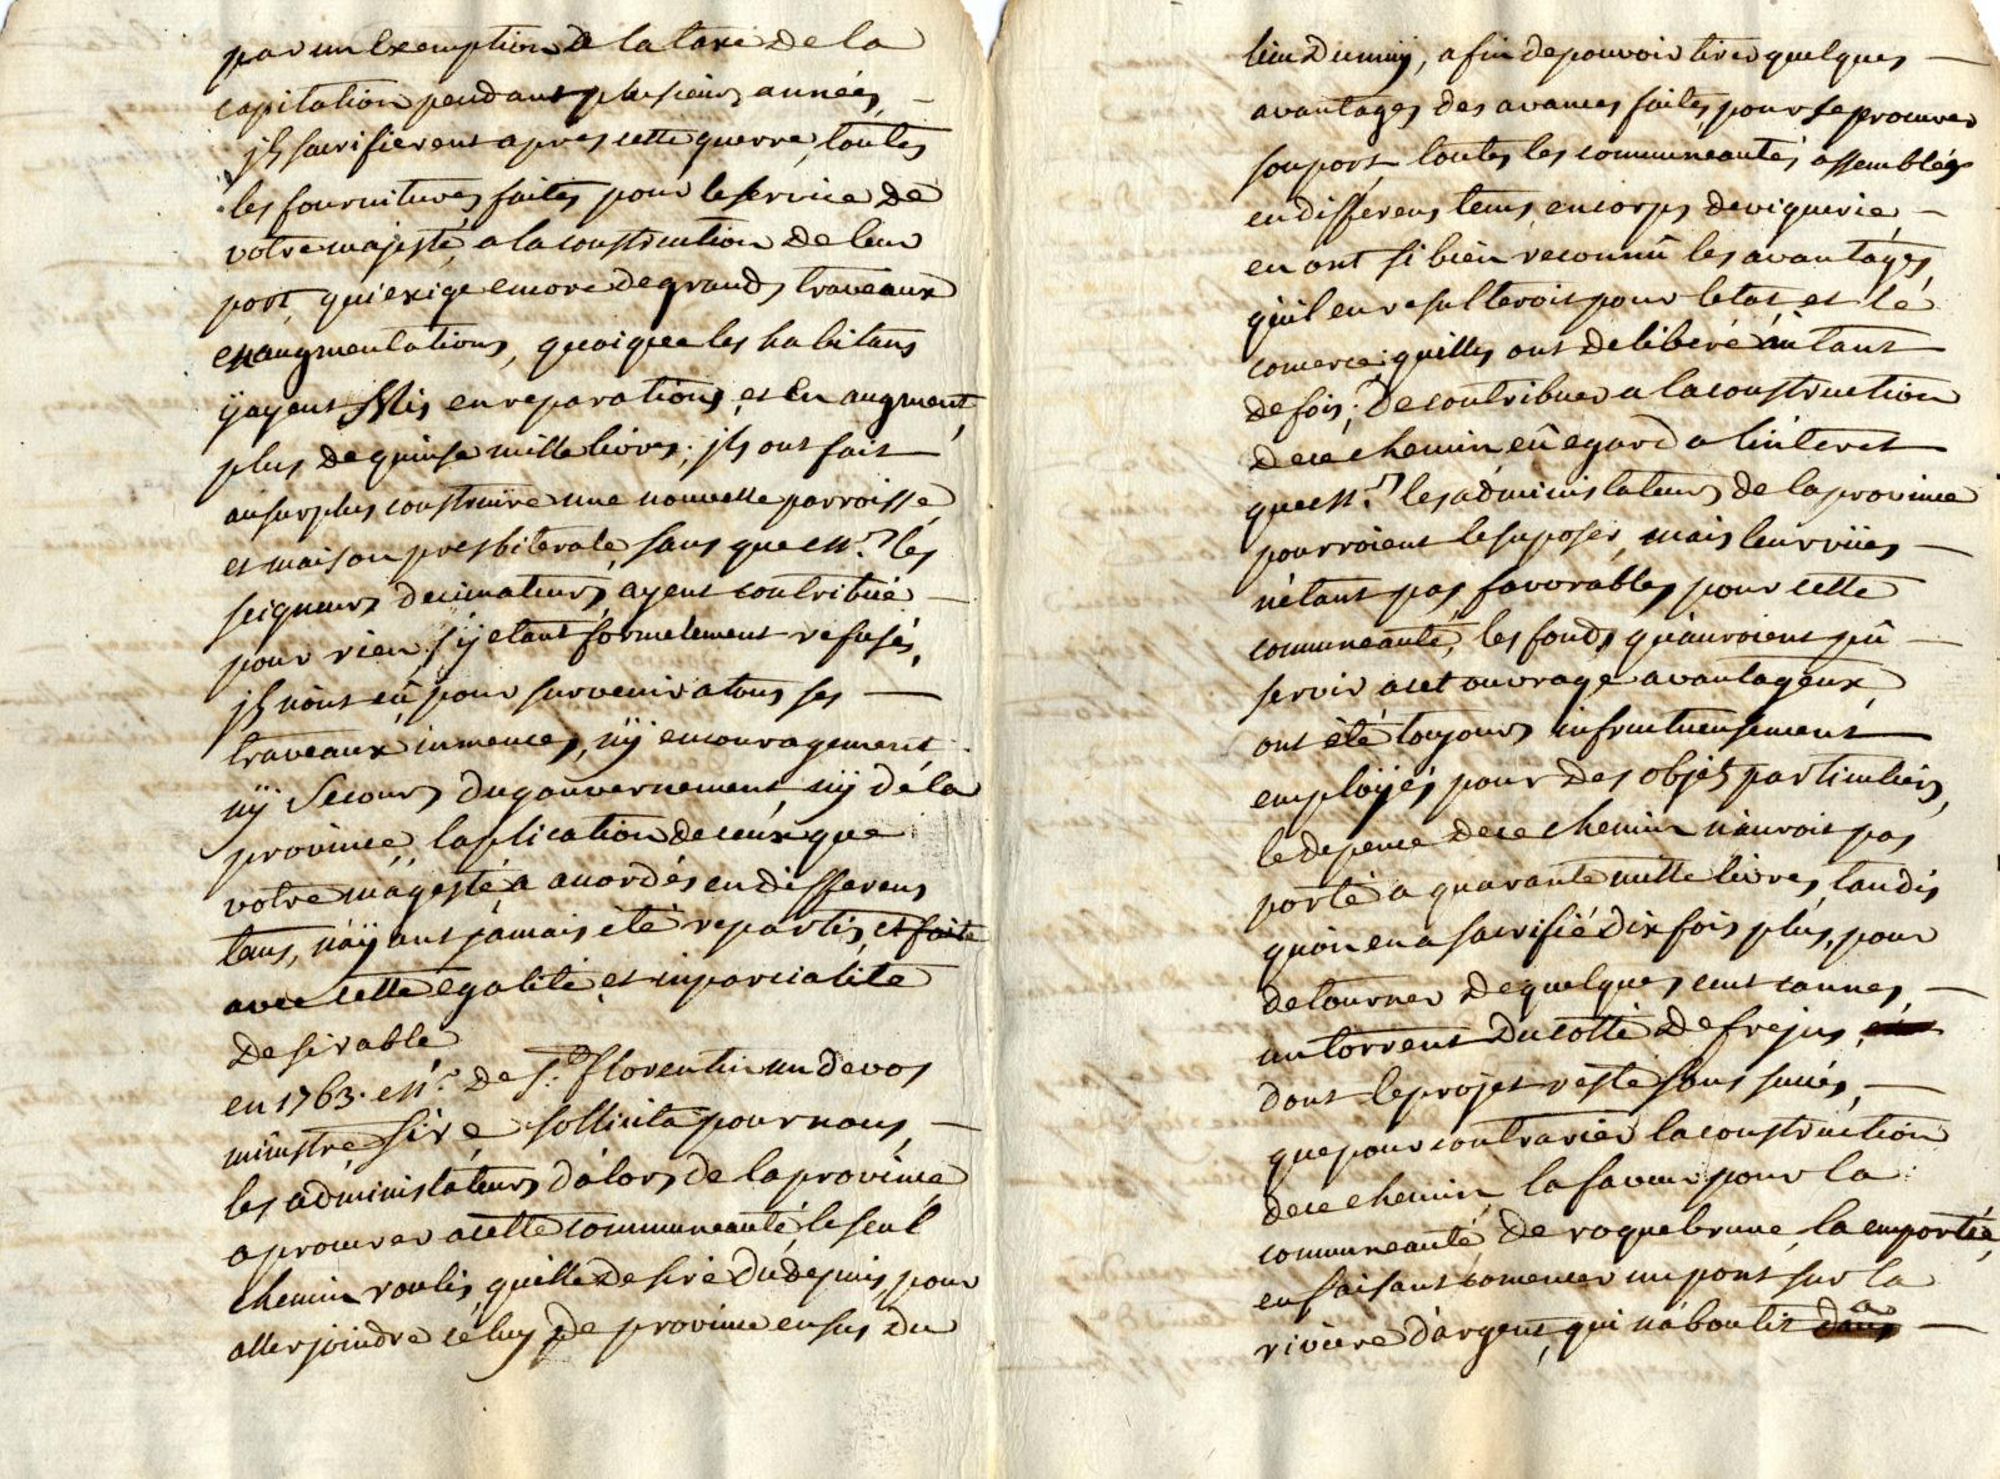 par un Exemption de la taxe de la
capitation pendant plusieurs années,
jls sacrifierent apres cette guerre, toutes
les fournitures faites pour le service de
votre majesté, a la construction de leur
port, qui exige encore de grands traveaux
en augmentations, quoique les habitans
ÿ ayent Mis en reparations, et en augment,
plus de quinse mille livres; jls ont fait
au surplus construire une nouvelle parroisse,
et maison presbiterale, sans que Mrs les
seigneurs decimateurs, ayent contribué
pour rien, s'ÿ etant formelement refusés,
jls n'ont eû, pour survenir a tous ses
traveaux inmences, nÿ encouragement,
nÿ Secours du gouvernement, nÿ de la
province, l'aplication de ceux que
votre magesté, a acordés en differens
tems, n'aÿant jamais été repartis, et faite
avec cette egalité, et inparcialité
desirable,
en 1763. Mr. de St. florentin un de vos
ministre, Sire, sollicita pour nous,
les administateurs d'alors de la province
a procurer a cette communeauté, le seul
chemin roulis, quelle desire du depuis, pour
aller joindre celuy de province en sus du
lieu du muÿ, afin de pouvoir tirer quelques
avantages des avances faites, pour se procurer
son port, toutes les communeautés assemblées
en differens tems, en corps de viguerie,
en ont si bien reconnû les avantages,
qu'il en resulteroit pour l'etat, et le
comerce; quelles ont deliberé autant
de fois; de contribuer a la construction
de ce chemin, eû egard a l'interet
que Mrs. les administateurs de la province
pourroient le suposer, mais leur vües
n'etant pas favorables, pour cette
communeauté, les fonds qu'auroient pû
servir a cet ouvrage avantageux,
ont été toujours infructueusement
emploÿés pour des objets particuliers,
le depence de ce chemin n'auroit pas
porté a quarante mille livres, tandis
qu'on en a sacrifié dix fois plus, pour
detourner de quelques cent cannes,
un torrent du cotté de frejus,
dont le projet resté sans succés,
que pour contrarier la construction
de ce chemin, la faveur pour la
communeauté, de roquebrune, la emportée,
en faisant comencer un pont sur la
riviere d'argent, qui n'aboutit a